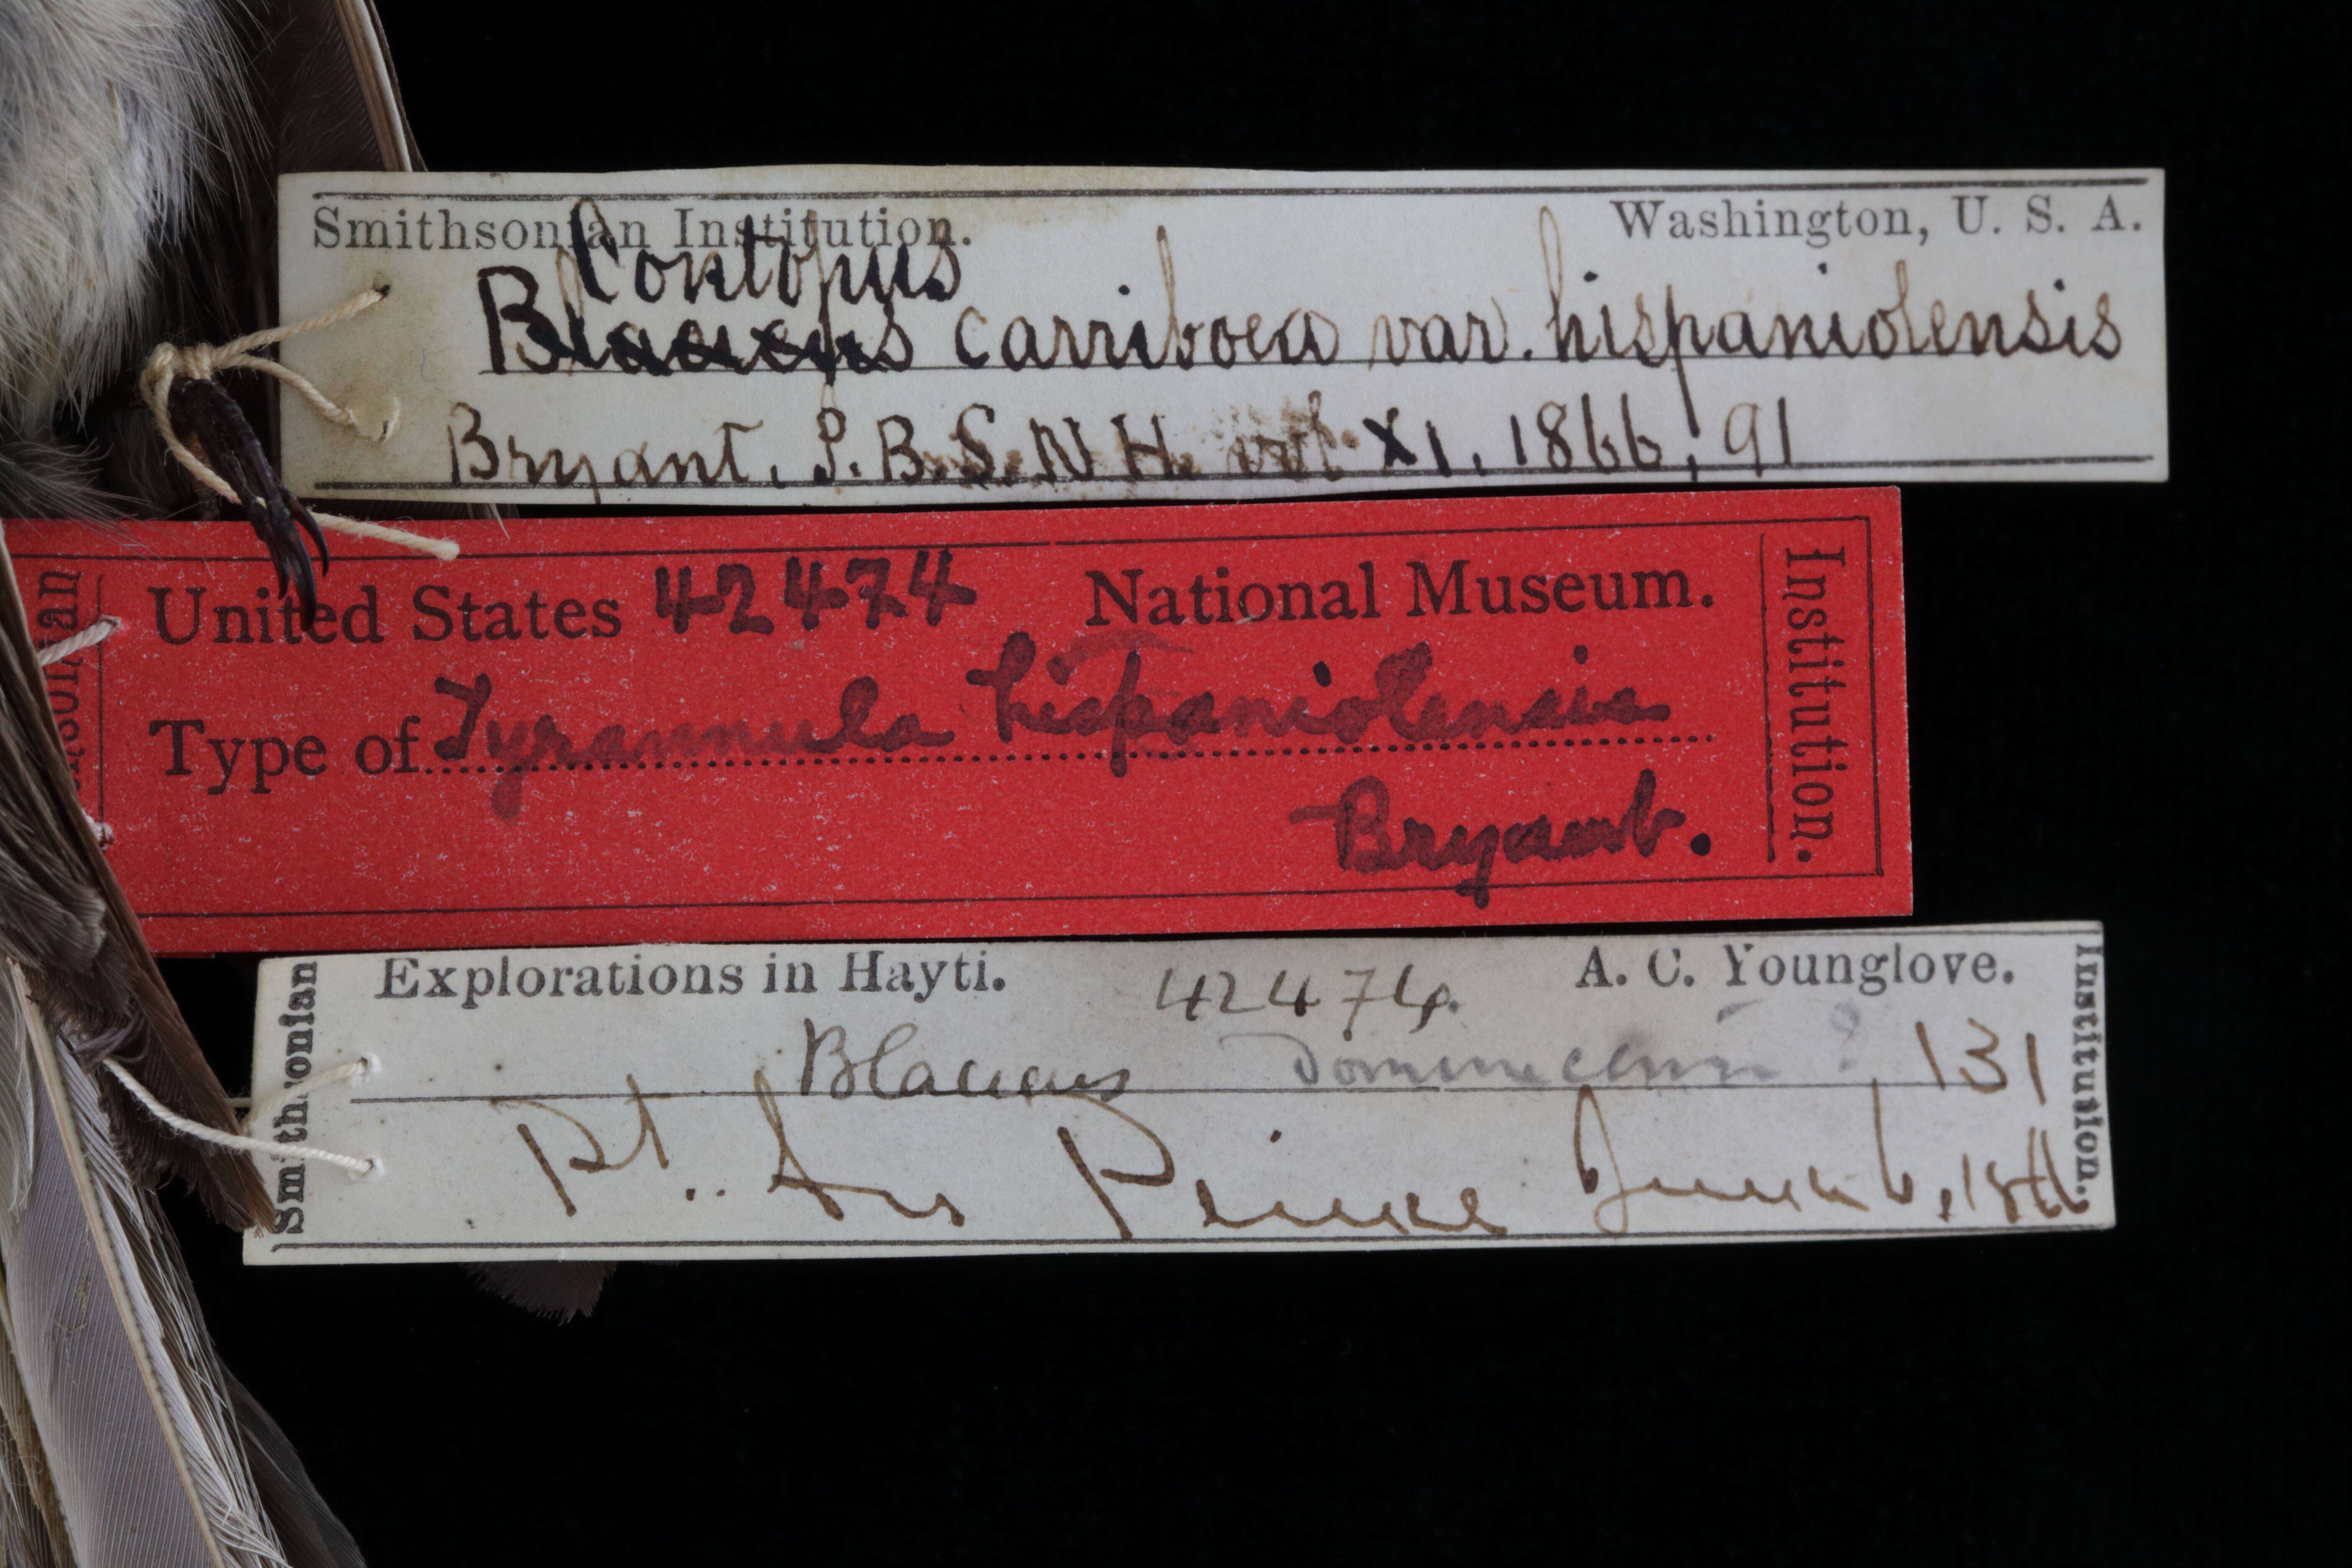 Smithsonian Institution. Washington, U. S. A.
Contopus
Blacicus carriboea var. hispaniolensis
Bryant, P. B. S. N H. vol XI, 1866, 91
United States 42474 National Museum.
Type of Tyrannula hispaniolensis
Bryant.
Institution.
Explorations in Hayti. 42474. A. C. Younglove.
Blacicus 131
Pt. Au Prince
Smithsonian
Institution.